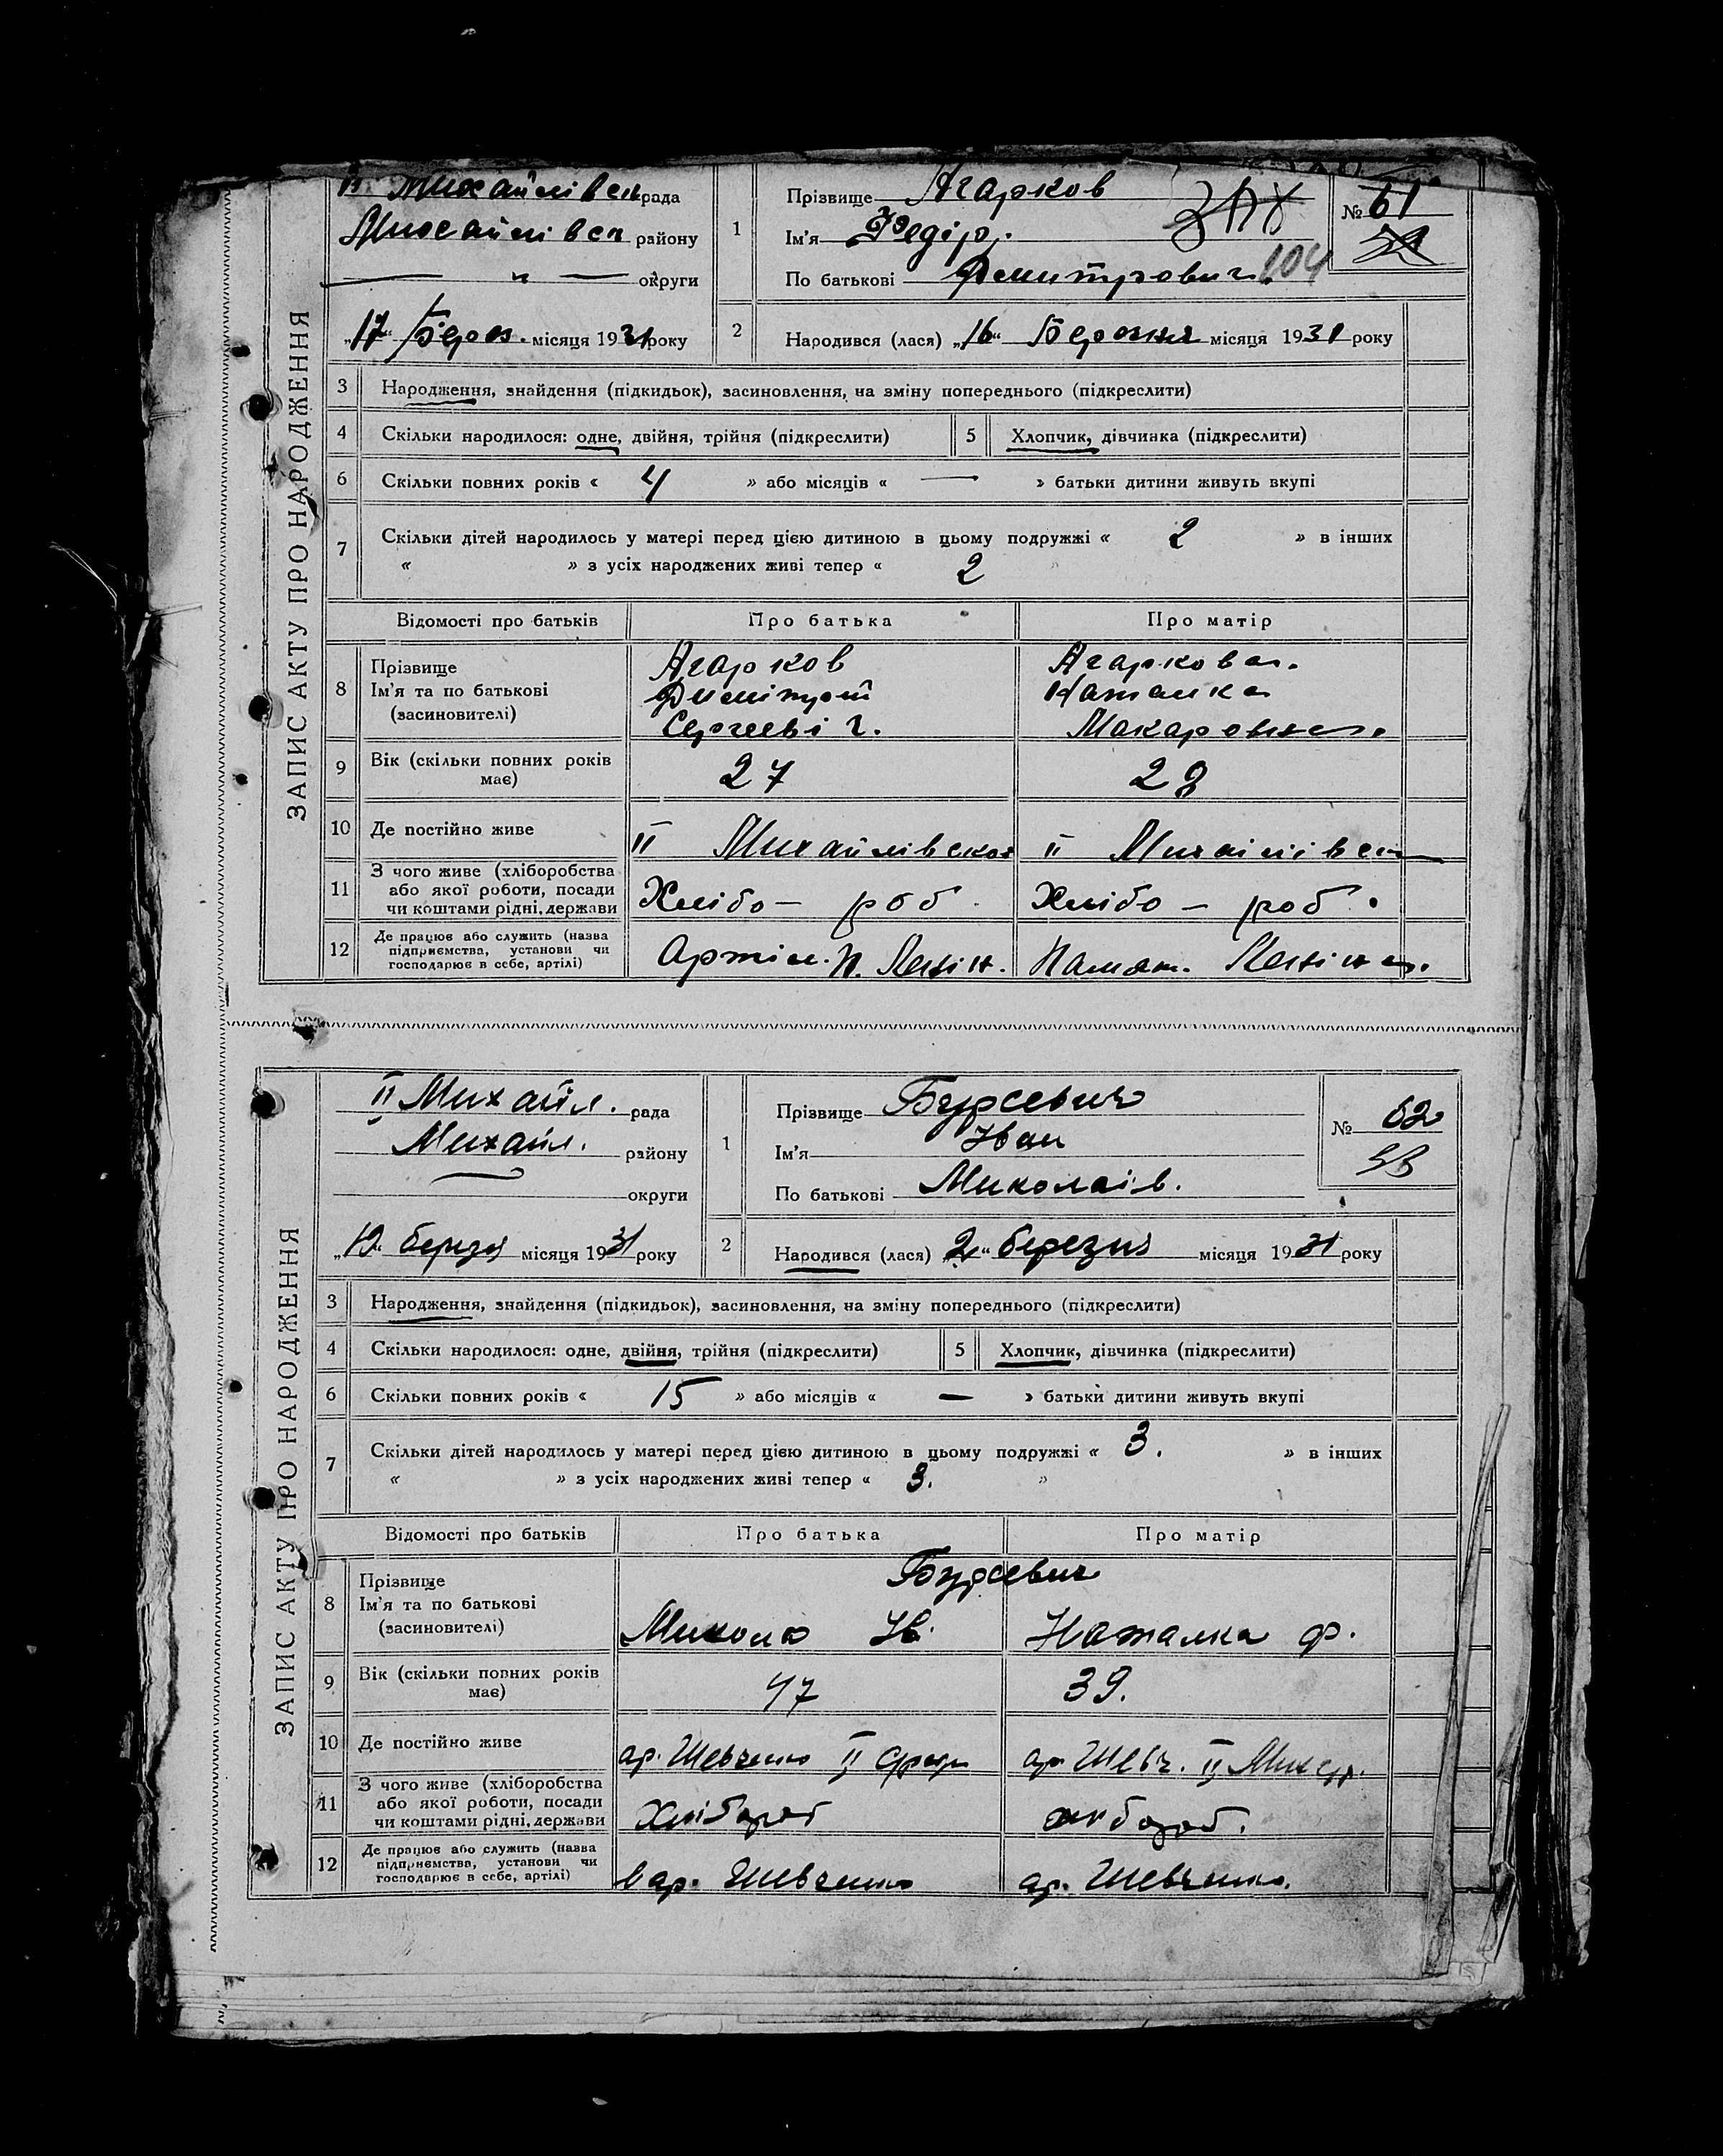 ЗАПИС АКТУ ПРО НАРОДЖЕННЯ
II Михайлівськ рада
Михайлівск району
— " — округи
„17“ Берез. місяця 1931 року
1
Прізвище Агарков
Ім'я Федір.
По батькові Дмитрович
104
№ 61
2
Народився (лася) „16“ Березня місяця 1931 року
3 Народження, знайдення (підкидьок), засиновлення, на зміну попереднього (підкреслити)
4 Скільки народилося: одне, двійня, трійня (підкреслити) 5 Хлопчик, дівчинка (підкреслити)
6 Скільки повних років « 4 » або місяців « — » батьки дитини живуть вкупі
7 Скільки дітей народилось у матері перед цією дитиною в цьому подружжі « 2 » в інших
« » з усіх народжених живі тепер « 2
Відомості про батьків Про батька Про матір
8 Прізвище Агарков Агаркова.
Ім'я та по батькові Дмитрий Наталка
(засиновителі) Сергеевіч. Макаровна.
9 Вік (скільки повних років має) 27 28
10 Де постійно живе II Михайлівска II Михайлівск
11 З чого живе (хліборобства або якої роботи, посади чи коштами рідні, держави Хлібо — роб. Хлібо — роб.
12 Де працює або служить (назва підприємства, установи чи господарює в себе, артілі) Артіл. П. Ленін. Памят. Леніна.
ЗАПИС АКТУ ПРО НАРОДЖЕННЯ
II Михайл. рада
Михайл. району
округи
„19“ березня місяця 1931 року
1
Прізвище Бурсевич
Ім'я Іван
По батькові Миколаів.
№ 62
53
2
Народився (лася) „2“ березня місяця 1931 року
3 Народження, знайдення (підкидьок), засиновлення, на зміну попереднього (підкреслити)
4 Скільки народилося: одне, двійня, трійня (підкреслити) 5 Хлопчик, дівчинка (підкреслити)
6 Скільки повних років « 15 » або місяців « — » батьки дитини живуть вкупі
7 Скільки дітей народилось у матері перед цією дитиною в цьому подружжі « 3. » в інших
« » з усіх народжених живі тепер « 3. »
Відомості про батьків Про батька Про матір
8 Прізвище Бурсевич
Ім'я та по батькові
(засиновителі) Микола Ів. Наталка Ф.
9 Вік (скільки повних років має) 47 39.
10 Де постійно живе ар. Шевченко II ар. Шевч. II
11 З чого живе (хліборобства або якої роботи, посади чи коштами рідні, держави Хлібороб хлібороб.
12 Де працює або служить (назва підприємства, установи чи господарює в себе, артілі) в ар. Шевченко ар. Шевченко.